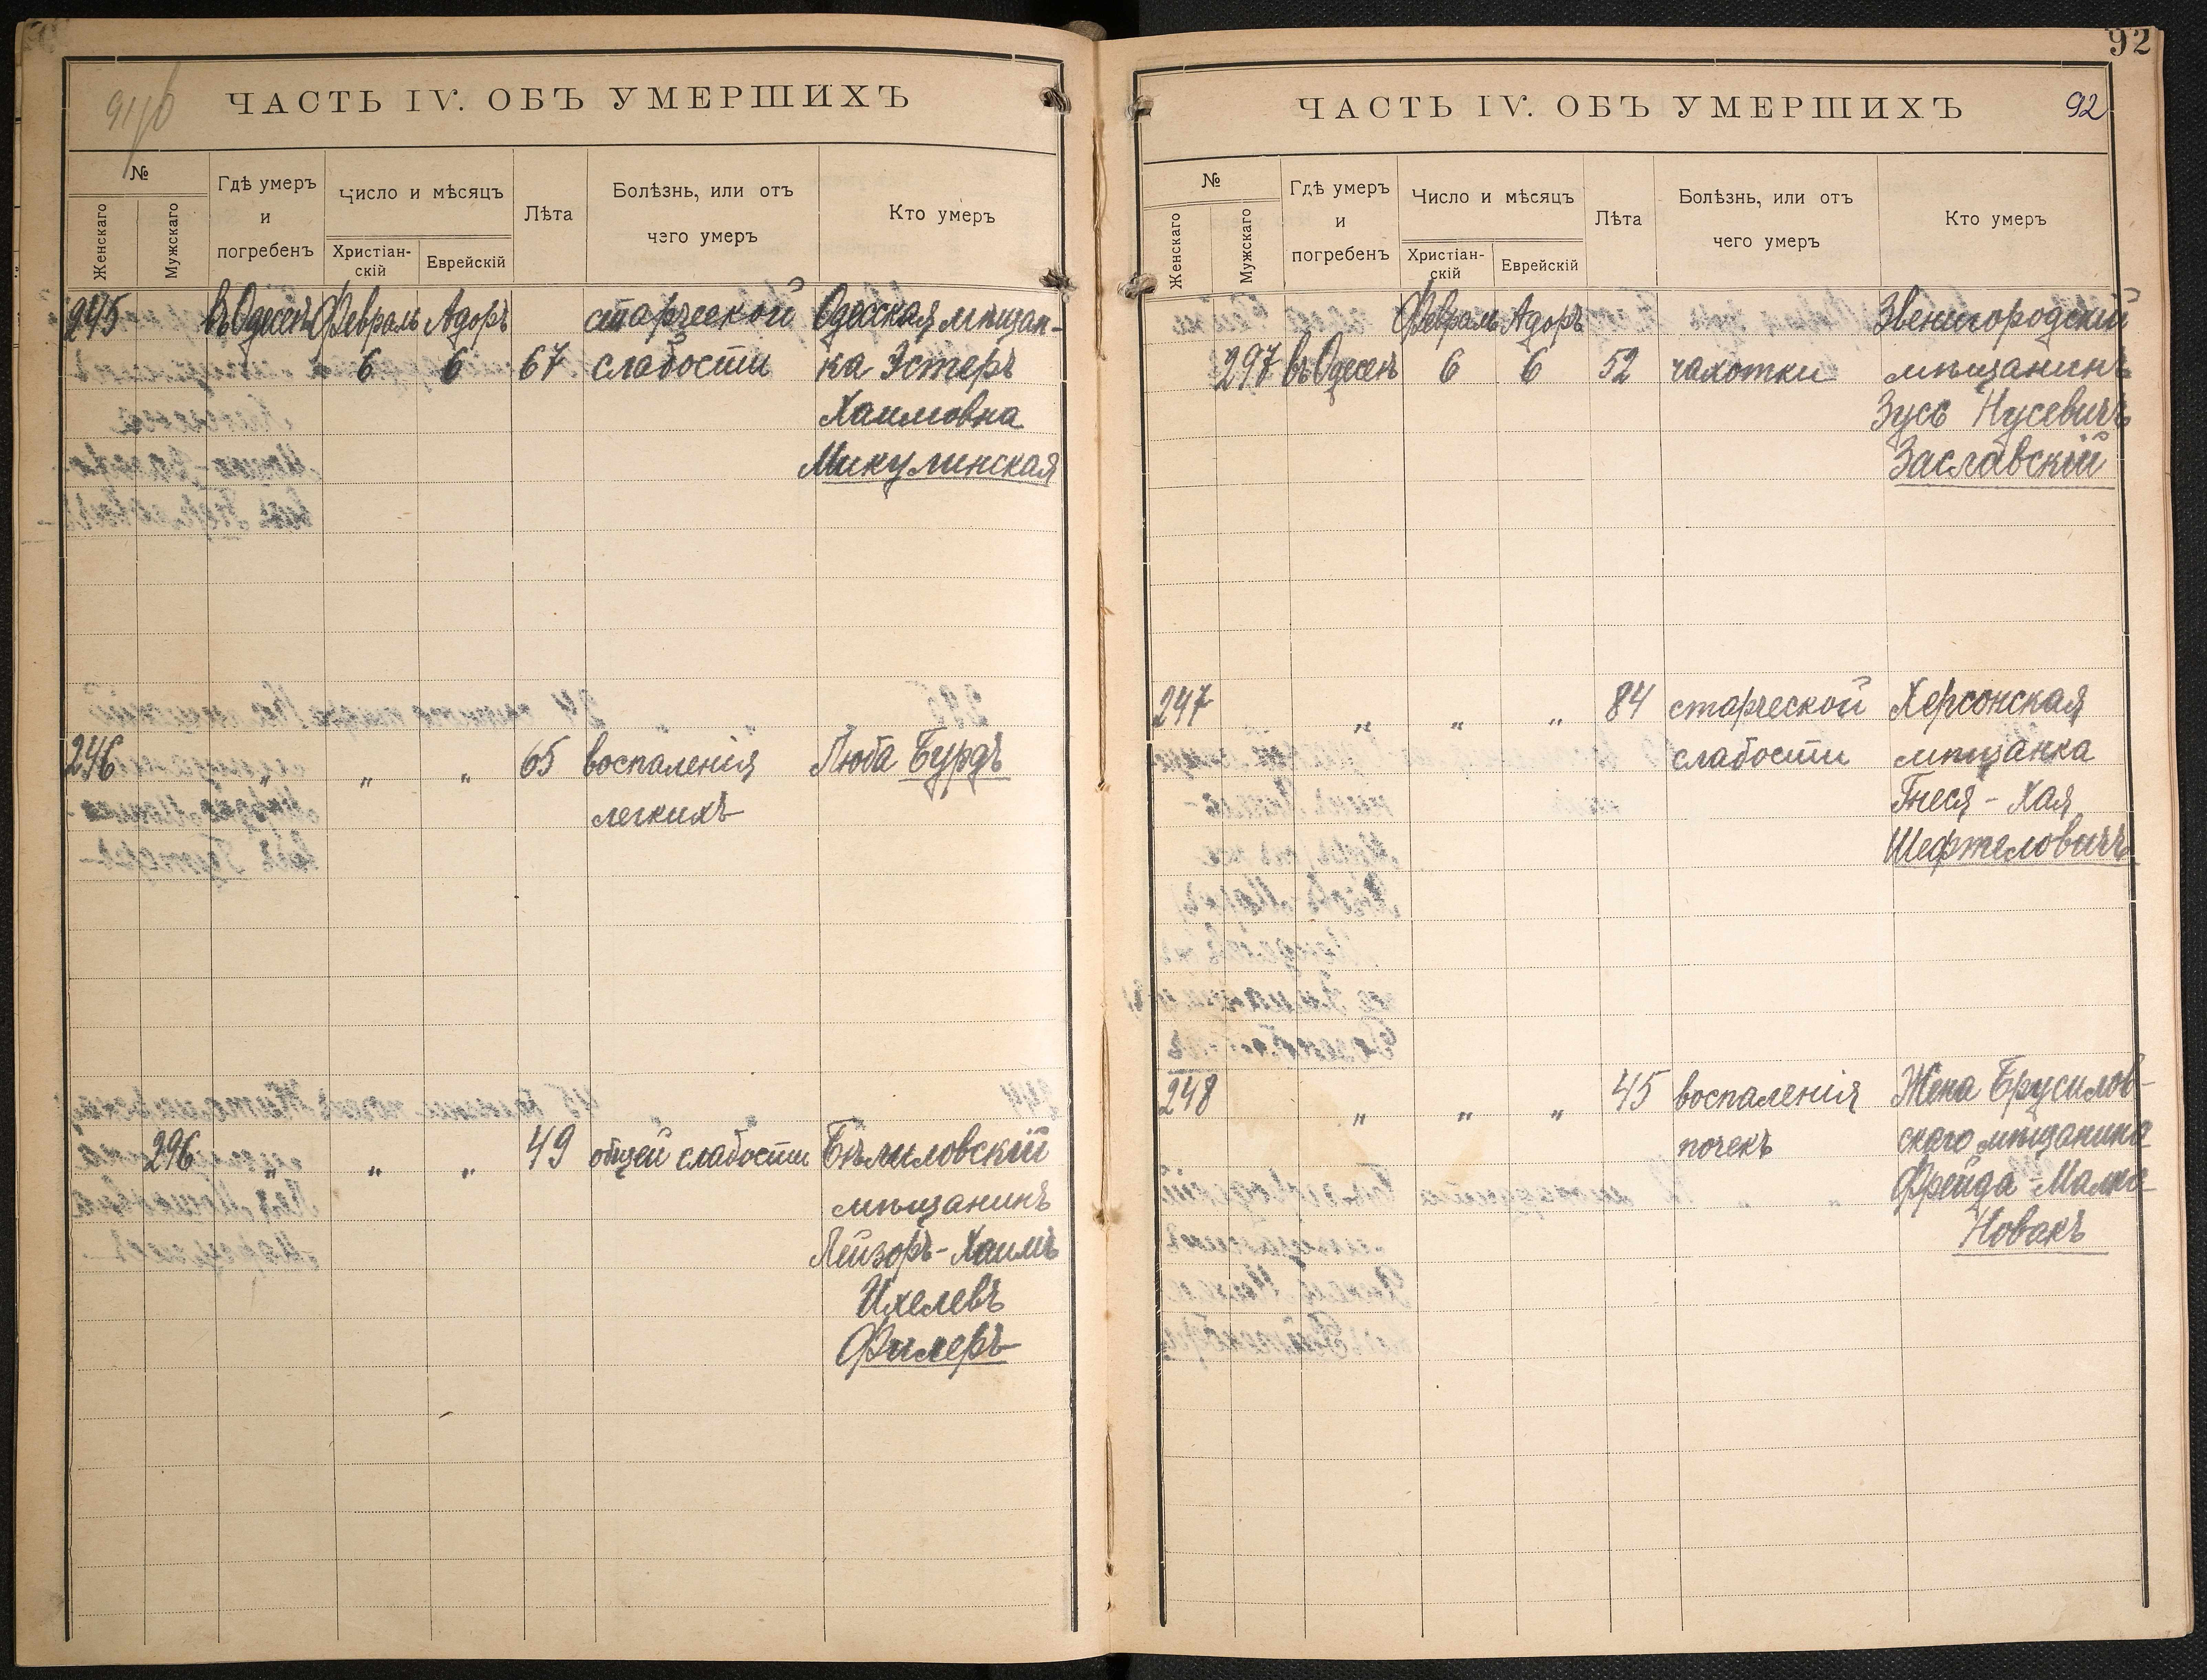 ЧАСТЬ IV. ОБЪ УМЕРШИХЪ
№
Женскаго
Мужскаго
Гдѣ умеръ
и
погребенъ
Число и мѣсяцъ
Христіан-
скій
Еврейскій
Лѣта
Болѣзнь, или отъ
чего умеръ
Кто умеръ
245 въ Одессѣ Февраль Адоръ старческой Одесская мѣщан-
6 6 67 слабости ка Эстеръ
Хаимовна
Микулинская
246 „ „ „ 65 воспаленія Люба Бурдъ
легкихъ
296 „ „ „ 49 общей слабости Бѣлиловскій
мѣщанинъ
Лейзоръ-Хаимъ
Ихелевъ
Филеръ
92
ЧАСТЬ IV. ОБЪ УМЕРШИХЪ 92
№
Женскаго
Мужскаго
Гдѣ умеръ
и
погребенъ
Число и мѣсяцъ
Христіан-
скій
Еврейскій
Лѣта
Болѣзнь, или отъ
чего умеръ
Кто умеръ
Февраль Адоръ Звенигородскій
297 въ Одессѣ 6 6 52 чахотки мѣщанинъ
Зусь Нусевичъ
Заславскій
247 „ „ „ 84 старческой Херсонская
слабости мѣщанка
Гнеся-Хая
Шефтеловичъ
248 „ „ „ 45 воспаленія Жена Брусилов-
почекъ скаго мѣщанина
Фрейда-Малка
Новакъ